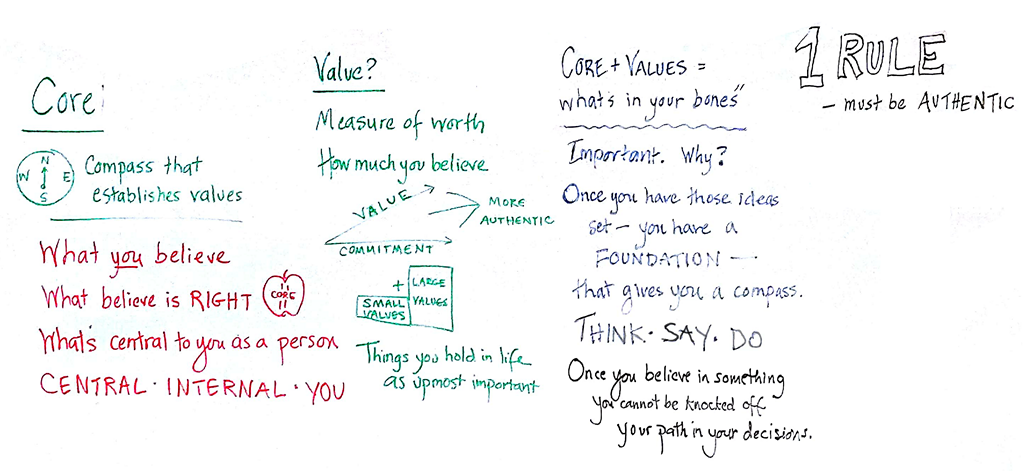 Core:
N
W E
S
Compass that
establishes values
What you believe
What believe is RIGHT
CORE
What's central to you as a person
CENTRAL · INTERNAL · YOU
Value?
Measure of worth
How much you believe
VALUE
MORE
AUTHENTIC
COMMITMENT
+
LARGE
VALUES
SMALL
VALUES
Things you hold in life
as upmost important
CORE + VALUES =
what's in your bones"
Important. Why?
Once you have those ideas
set — you have a
FOUNDATION —
that gives you a compass.
THINK · SAY · DO
Once you believe in something
you cannot be knocked off
your path in your decisions.
1 RULE
— must be AUTHENTIC